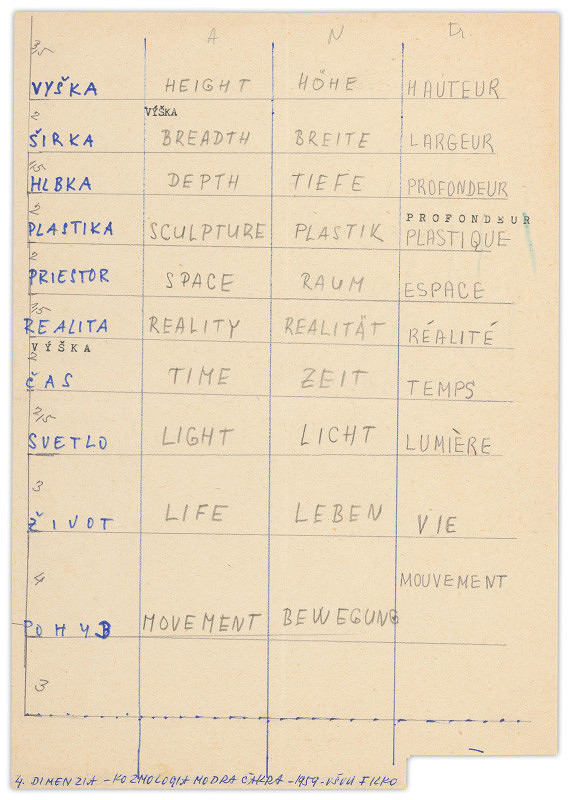 A N Fr.
3,5
VÝŠKA HEIGHT HÖHE HAUTEUR
2 VÝŠKA
ŠIRKA BREADTH BREITE LARGEUR
1,5
HLBKA DEPTH TIEFE PROFONDEUR
2 PROFONDEUR
PLASTIKA SCULPTURE PLASTIK PLASTIQUE
2
PRIESTOR SPACE RAUM ESPACE
1,5
REALITA REALITY REALITÄT RÉALITÉ
VÝŠKA
2
ČAS TIME ZEIT TEMPS
2,5
SVETLO LIGHT LICHT LUMIÈRE
3
ŽIVOT LIFE LEBEN VIE
4 MOUVEMENT
POHYB MOVEMENT BEWEGUNG
3
4. DIMENZIA - KOZMOLOGIA MODRA ČAKRA - 1959 - FILKO